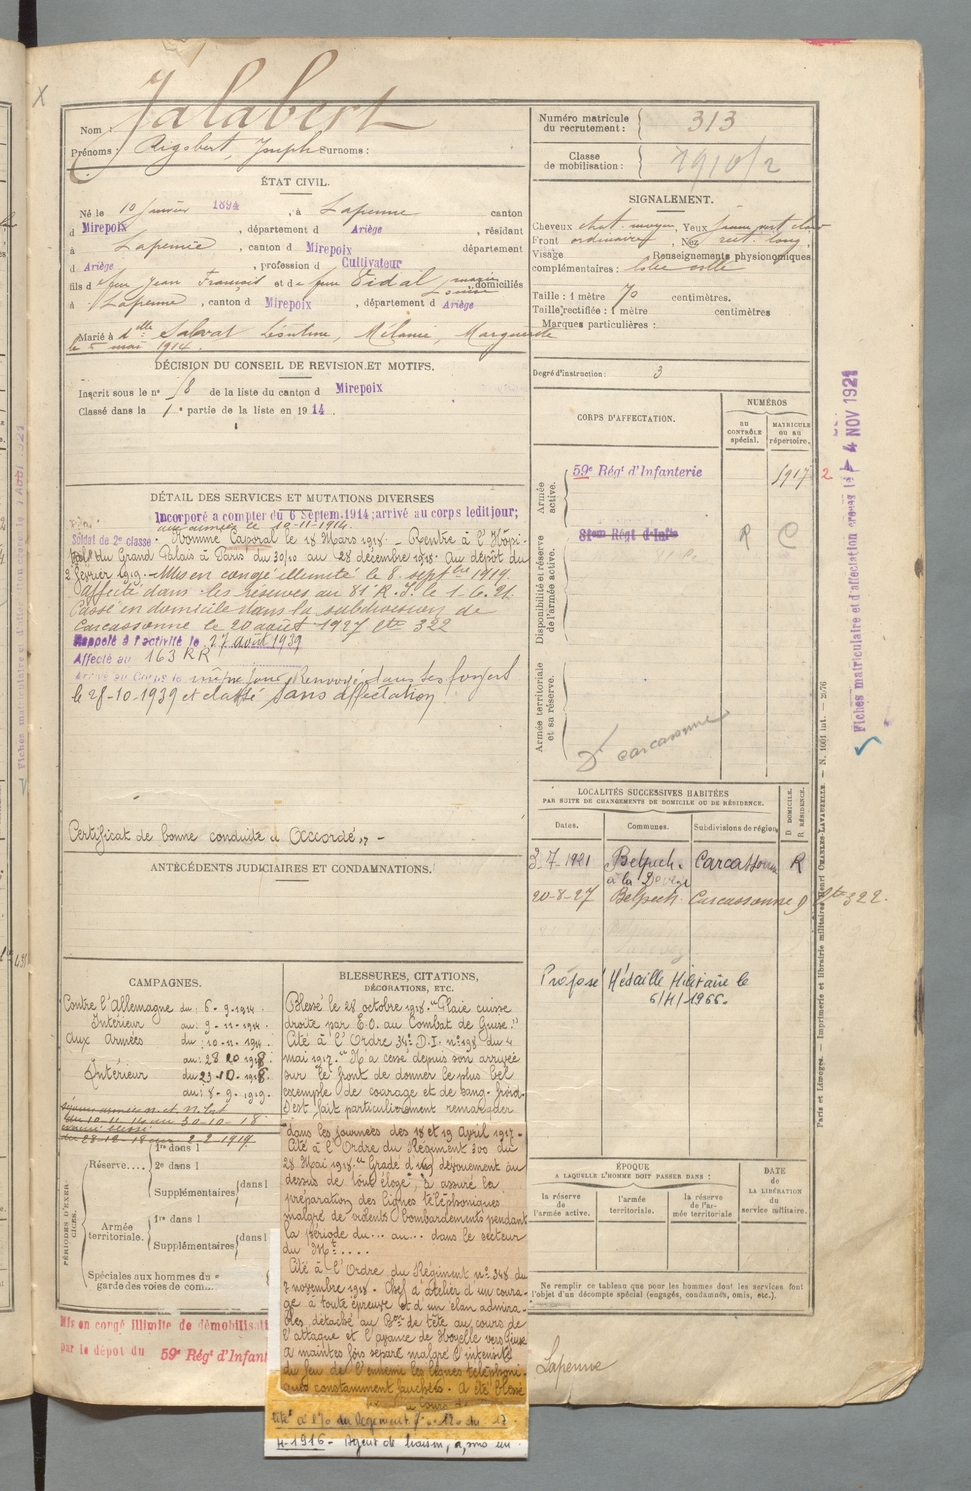 X
Nom : Jalabert
Prénoms : Rigobert, Joseph Surnoms :
ÉTAT CIVIL.
Né le 10 Janvier 1894, à Lapenne canton
d Mirepoix, département d Ariège, résidant
à Lapenne, canton d Mirepoix département
d Ariège, profession d Cultivateur
fils d feu Jean François et de feue Vidal Marie Louise domiciliés
à Lapenne, canton d Mirepoix, département d Ariège
Marié à dlle Salvat Léontine, Mélanie, Marguerite
le 5 mai 1914.
DÉCISION DU CONSEIL DE REVISION ET MOTIFS.
Inscrit sous le n° 18 de la liste du canton d Mirepoix
Classé dans la 1e partie de la liste en 1914.
DÉTAIL DES SERVICES ET MUTATIONS DIVERSES
Incorporé a compter du 6 Septem. 1914; arrivé au corps ledit jour;
aux armées le 10-11-1914.
Soldat de 2e classe. Nommé Caporal le 18 Mars 1918. Rentre à l'Hôpi-
tal du Grand Palais à Paris du 30/10 au 28 décembre 1918. Au dépôt du
2 février 1919. Mis en congé illimité le 8 septbre 1919.
Affecté dans les réserves au 81e R.I. le 1.6.21
Passé en domicile dans la subdivision de
Carcassonne le 20 août 1927 Lte 322
Rappelé à l'activité le 27 août 1939
Affecté au 163 RR
Arrivé au Corps le même jour. Renvoyé dans ses foyers
le 28-10-1939 et classé sans affectation
Certificat de bonne conduite "Accordé" -
ANTÉCÉDENTS JUDICIAIRES ET CONDAMNATIONS.
CAMPAGNES.
Contre l'Allemagne du : 6-9-1914
Intérieur au : 9-11-1914.
Aux Armées du : 10-11-1914.
au : 28 10 1918.
Intérieur du 29-10-1918.
au : 8-9-1919.
du 10-11-14 au 30-10-18
du 28-12-18 au 2-2-1919
PÉRIODES D'EXERCICES.
Réserve.... 1re dans l
2e dans l
Supplémentaires dans l
Armée territoriale. 1re dans l
Supplémentaires dans l
Spéciales aux hommes du
garde des voies de com...
Mis en congé illimité de démobilisati
par le dépôt du 59e Régt d'Infant
BLESSURES, CITATIONS,
DÉCORATIONS, ETC.
Blessé le 28 octobre 1918. "Plaie cuisse
droite par E.O. au Combat de Guise."
Cité à l'Ordre 34e D.I. n° 198 du 4
mai 1917. "N'a cessé depuis son arrivée
sur le front de donner le plus bel
exemple de courage et de sang-froid.
S'est fait particulièrement remarquer
dans les journées des 18 et 19 Avril 1917.-
Cité à l'Ordre du Régiment 300 du
28 Mai 1918. "Gradé d'un dévouement au
dessus de tout éloge, a assuré la
préparation des lignes téléphoniques
malgré de violents bombardements pendant
la période du... au... dans le secteur
du M.....
Cité à l'Ordre du Régiment n° 348 du
7 novembre 1918. Chef d'atelier d'un coura-
ge à toute épreuve et d'un élan admira-
ble, détaché au Bon de tête au cours de
l'attaque et l'avance de vers Guise
a maintes fois réparé malgré l'intensité
du feu de l'ennemi les lignes téléphoni-
ques constamment fauchées. A été blessé
cité à l'O du Régiment n° 120 du 17
4-1916 - Agent de liaison, a, sous un
Numéro matricule
du recrutement : 313
Classe
de mobilisation : 1910/2
SIGNALEMENT.
Cheveux chat. moyen, Yeux jaune vert clair
Front ordinaire, Nez rect. long,
Visage Renseignements physionomiques
complémentaires :
Taille : 1 mètre 70 centimètres.
Taille rectifiée : 1 mètre centimètres
Marques particulières :
Degré d'instruction : 3
CORPS D'AFFECTATION.
NUMÉROS
AU CONTRÔLE spécial.
MATRICULE OU AU répertoire.
Armée active.
59e Régt d'Infanterie 5917 2
Disponibilité et réserve de l'armée active.
81eme Régt d'Infie R C
Armée territoriale et sa réserve.
Dt Carcassonne
LOCALITÉS SUCCESSIVES HABITÉES
PAR SUITE DE CHANGEMENTS DE DOMICILE OU DE RÉSIDENCE.
Dates. Communes. Subdivisions de région. D DOMICILE. R RÉSIDENCE.
3-7-1921 Belpech. Carcassonne R
à la
20-8-27 Belpech Carcassonne D Lte 322.
Proposé Médaille Militaire le
6/4/1966.
ÉPOQUE
A LAQUELLE L'HOMME DOIT PASSER DANS :
la réserve de l'armée active.
l'armée territoriale.
la réserve de l'armée territoriale
DATE de LA LIBÉRATION du service militaire.
Ne remplir ce tableau que pour les hommes dont les services font
l'objet d'un décompte spécial (engagés, condamnés, omis, etc.).
Lapenne
Fiches matriculaire et d'affectation créées le 4 NOV 1921
Paris et Limoges. — Imprimerie et librairie militaires Henri CHARLES-LAVAUZELLE. — N. 1001 int. — 2-76